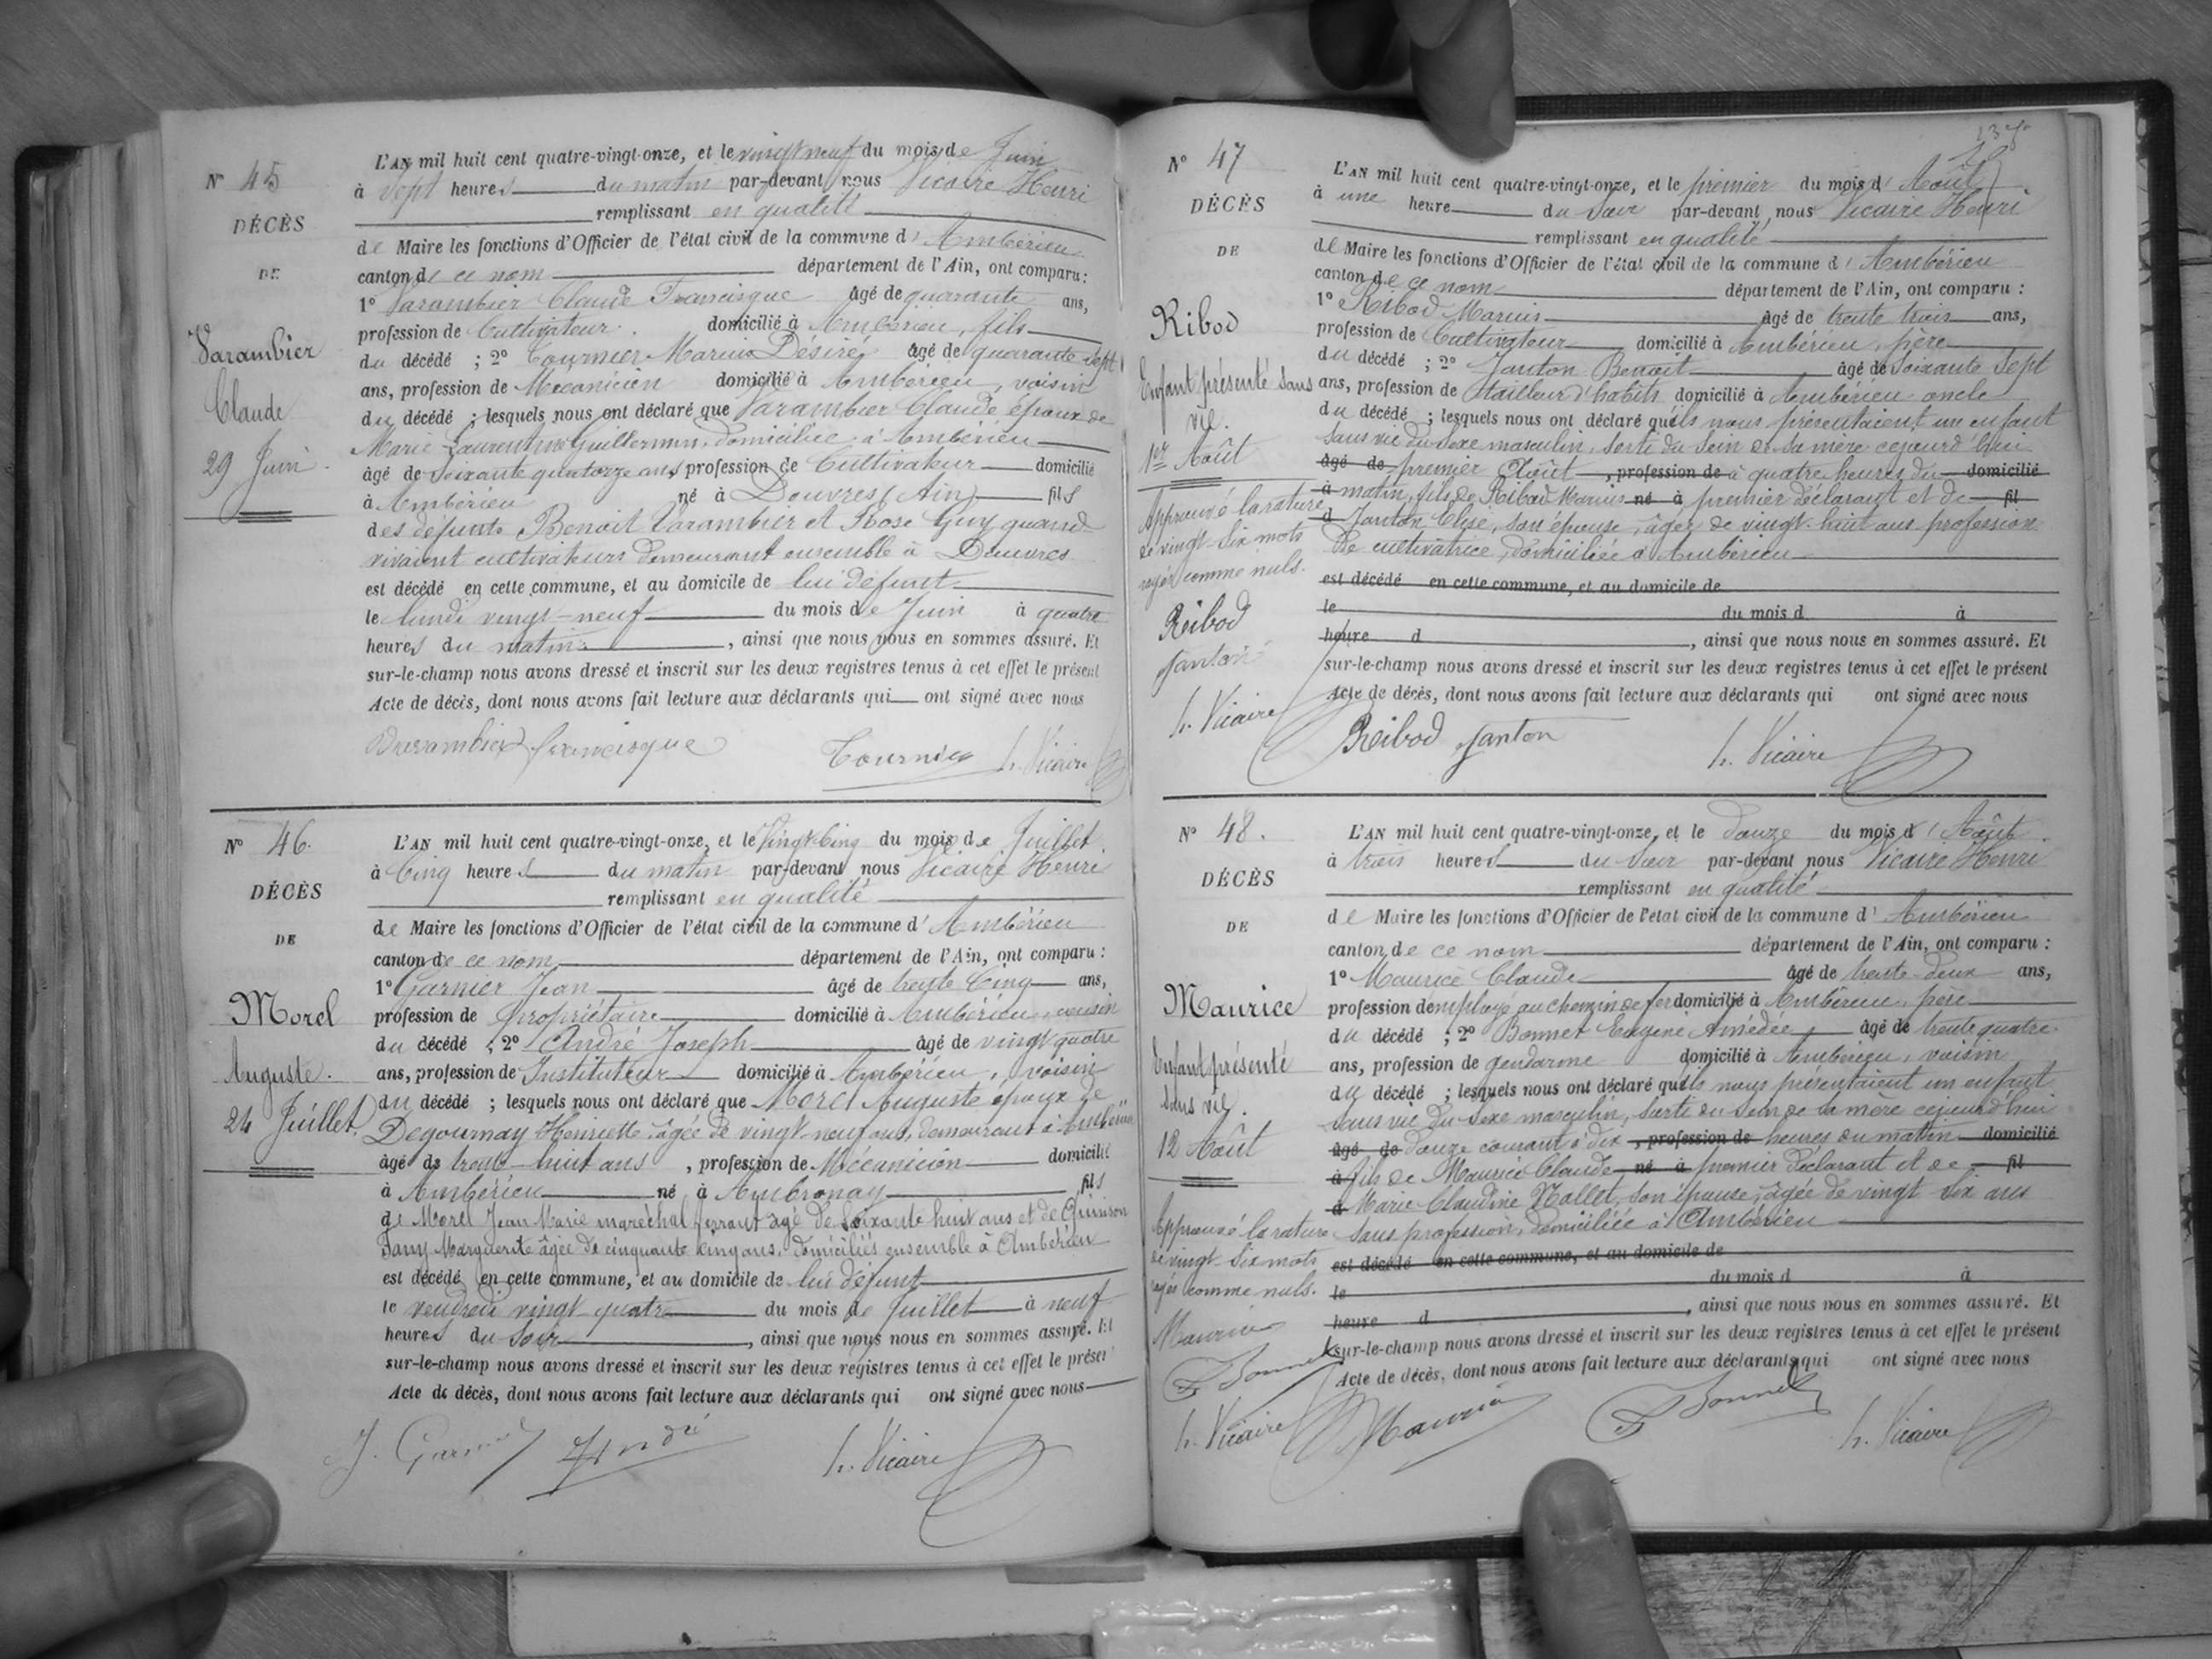 N° 45
DÉCÈS
DE
Varambier
Claude
29 Juin.
L'AN mil huit cent quatre-vingt-onze, et le vingt neuf du mois de Juin
à sept heures du matin par-devant nous Vicaire Henri
remplissant en qualité
de Maire les fonctions d'Officier de l'état civil de la commune d'Ambérieu
canton de ce nom département de l'Ain, ont comparu :
1° Varambier Claude Francisque âgé de quarante ans,
profession de Cultivateur. domicilié à Ambérieu, fils
du décédé ; 2° Tournier Marius Désiré, âgé de quarante sept
ans, profession de Mécanicien domicilié à Ambérieu, voisin
du décédé ; lesquels nous ont déclaré que Varambier Claude époux de
Marie Laurentine Guillermin, domiciliée à Ambérieu
âgé de soixante quatorze ans profession de Cultivateur domicilié
à Ambérieu né à Douvres (Ain) fils
des défunts Benoit Varambier et Rose Guy quand
vivaient cultivateurs demeurant ensemble à Douvres
est décédé en cette commune, et au domicile de lui défunt
le lundi vingt-neuf du mois de Juin à quatre
heures du matin, ainsi que nous nous en sommes assuré. Et
sur-le-champ nous avons dressé et inscrit sur les deux registres tenus à cet effet le présent
Acte de décès, dont nous avons fait lecture aux déclarants qui ont signé avec nous
Varambier francisque Tournier h. Vicaire
N° 46.
DÉCÈS
DE
Morel
Auguste.
24 Juillet.
L'AN mil huit cent quatre-vingt-onze, et le Vingt Cinq du mois de Juillet
à Cinq heures du matin par-devant nous Vicaire Henri
remplissant en qualité
de Maire les fonctions d'Officier de l'état civil de la commune d'Ambérieu
canton de ce nom département de l'Ain, ont comparu :
1° Garnier Jean âgé de trente Cinq ans,
profession de propriétaire domicilié à Ambérieu, cousin
du décédé ; 2° André Joseph âgé de vingt quatre
ans, profession de Instituteur domicilié à Ambérieu, voisin
du décédé ; lesquels nous ont déclaré que Morel Auguste époux de
Degournay Henriette âgée de vingt-neuf ans, demeurant à Ambérieu
âgé de trente-huit ans, profession de Mécanicien domicilié
à Ambérieu né à Ambronay fils
de Morel Jean Marie maréchal ferrant âgé de soixante huit ans et de
Marguerite âgée de cinquante cinq ans, domiciliés ensemble à Ambérieu
est décédé en cette commune, et au domicile de lui défunt
le vendredi vingt quatre du mois de Juillet à neuf
heures du soir, ainsi que nous nous en sommes assuré. Et
sur-le-champ nous avons dressé et inscrit sur les deux registres tenus à cet effet le présent
Acte de décès, dont nous avons fait lecture aux déclarants qui ont signé avec nous
J. Garnier André h. Vicaire
N° 47
DÉCÈS
DE
Ribod
Enfant présenté sans
vie.
1er Août
Approuvé la rature
de vingt-six mots
rayés comme nuls.
Ribod
Janton
h. Vicaire
L'AN mil huit cent quatre-vingt-onze, et le premier du mois d'Août
à une heure du soir par-devant nous Vicaire Henri
remplissant en qualité
de Maire les fonctions d'Officier de l'état civil de la commune d'Ambérieu
canton de ce nom département de l'Ain, ont comparu :
1° Ribod Marius âgé de trente trois ans,
profession de Cultivateur domicilié à Ambérieu, père
du décédé ; 2° Janton Benoit âgé de soixante sept
ans, profession de tailleur d'habits domicilié à Ambérieu oncle
du décédé ; lesquels nous ont déclaré qu'ils nous présentaient un enfant
sans vie du sexe masculin, sorti du sein de sa mère cejourd'hui
âgé de premier Août, profession de à quatre heures du domicilié
à matin, fils de Ribod Marius né à premier déclarant et de fil
d Janton Elise, son épouse, âgée de vingt-huit ans profession
de cultivatrice, domiciliée à Ambérieu
est décédé en cette commune, et au domicile de
le du mois d à
heure d, ainsi que nous nous en sommes assuré. Et
sur-le-champ nous avons dressé et inscrit sur les deux registres tenus à cet effet le présent
Acte de décès, dont nous avons fait lecture aux déclarants qui ont signé avec nous
Ribod Janton h. Vicaire
N° 48.
DÉCÈS
DE
Maurice
Enfant présenté
sans vie.
12 Août
Approuvé la rature
de vingt-six mots
rayés comme nuls.
Maurice
Bonnet
h. Vicaire
L'AN mil huit cent quatre-vingt-onze, et le douze du mois d'Août
à trois heures du soir par-devant nous Vicaire Henri
remplissant en qualité
de Maire les fonctions d'Officier de l'état civil de la commune d'Ambérieu
canton de ce nom département de l'Ain, ont comparu :
1° Maurice Claude âgé de trente-deux ans,
profession d'employé au chemin de fer domicilié à Ambérieu, père
du décédé ; 2° Bonnet Eugène Amédée, âgé de trente quatre
ans, profession de gendarme domicilié à Ambérieu, voisin
du décédé ; lesquels nous ont déclaré qu'ils nous présentaient un enfant
sans vie du sexe masculin, sorti du sein de sa mère cejourd'hui
âgé de douze courant à dix, profession de heures du matin domicilié
à fils de Maurice Claude né à premier déclarant et de fil
d Marie Claudine Mallet, son épouse, âgée de vingt six ans
sans profession, domiciliée à Ambérieu
est décédé en cette commune, et au domicile de
le du mois d à
heure d, ainsi que nous nous en sommes assuré. Et
sur-le-champ nous avons dressé et inscrit sur les deux registres tenus à cet effet le présent
Acte de décès, dont nous avons fait lecture aux déclarants qui ont signé avec nous
Maurice Bonnet h. Vicaire